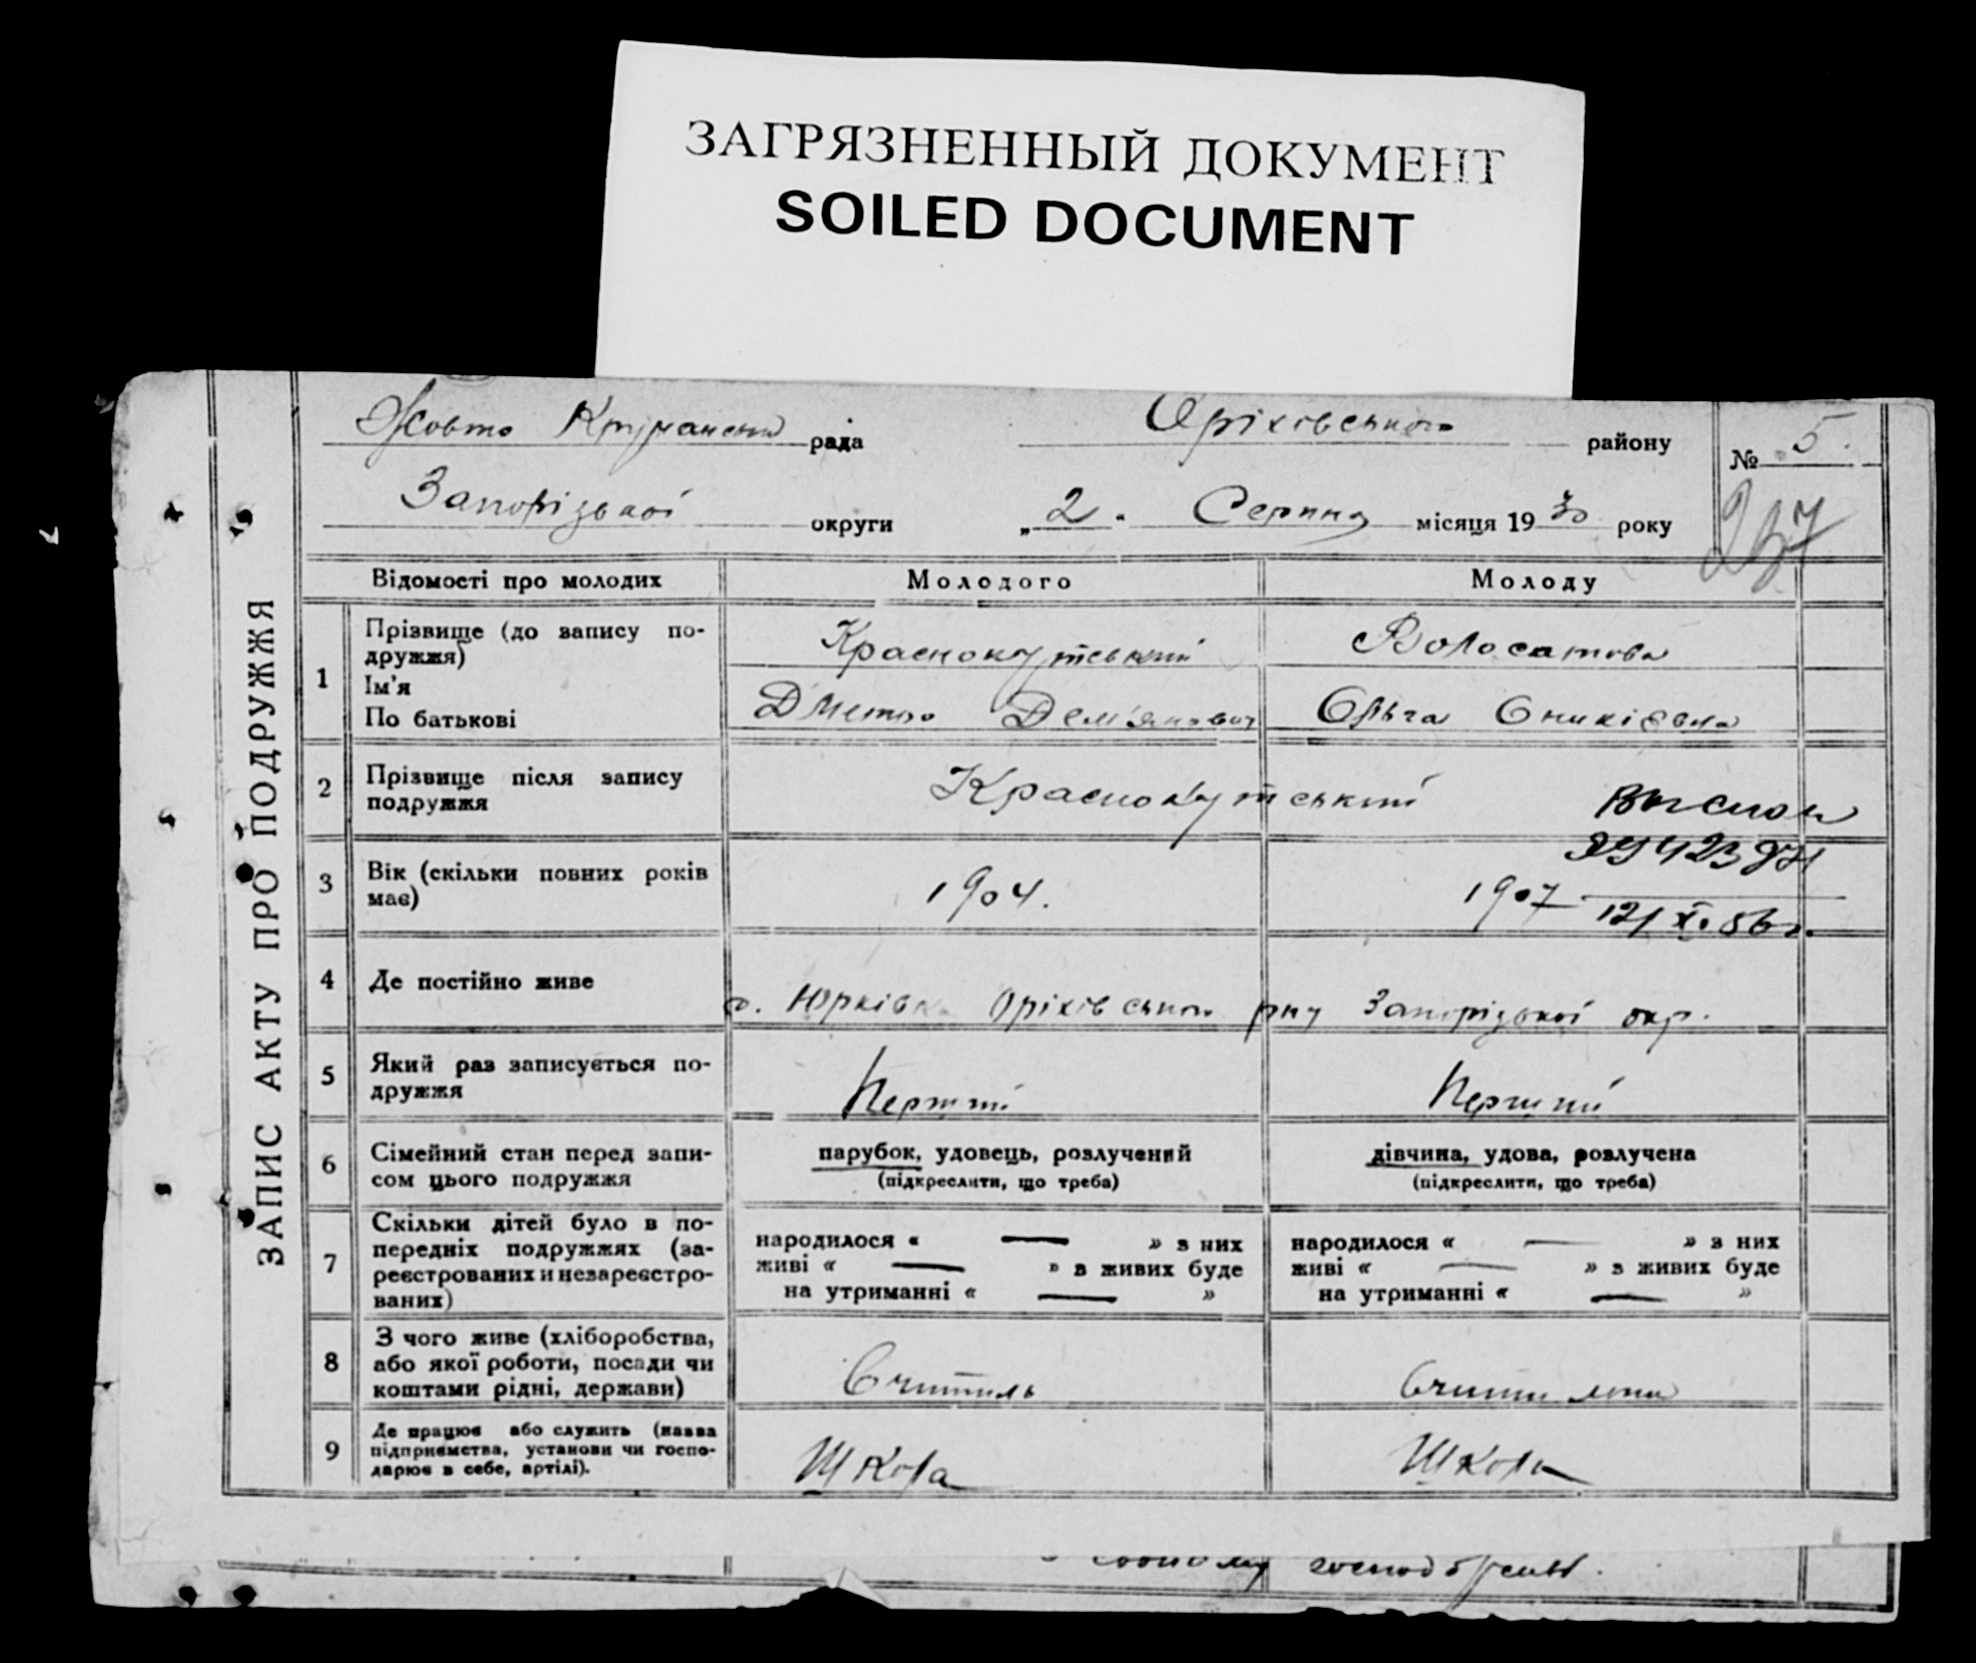 ЗАГРЯЗНЕННЫЙ ДОКУМЕНТ
SOILED DOCUMENT
ЗАПИС АКТУ ПРО ПОДРУЖЖЯ
Жовто рада Оріхівського району № 5.
Запорізької округи „2" Серпня місяця 1930 року
237
Відомості про молодих Молодого Молоду
1 Прізвище (до запису по-
дружжя)
Ім'я
По батькові
Краснокутський Волосатова
Дметро Дем'янович Ольга Оникієвна
2 Прізвище після запису
подружжя
Краснокутський
3 Вік (скільки повних років
має)
1904. 1907
12/XI.56г.
4 Де постійно живе
с. Юрківка Оріхівського рну Запорізької окр.
5 Який раз записується по-
дружжя
Перший Перший
6 Сімейний стан перед запи-
сом цього подружжя
парубок, удовець, розлучений дівчина, удова, розлучена
(підкреслити, що треба) (підкреслити, що треба)
7 Скільки дітей було в по-
передніх подружжях (за-
реєстрованих и незареєстро-
ваних)
народилося « — » з них народилося « — » з них
живі « — » з живих буде живі « — » з живих буде
на утриманні « — » на утриманні « — »
8 З чого живе (хліборобства,
або якої роботи, посади чи
коштами рідні, держави)
Учитиль
9 Де працює або служить (назва
підприємства, установи чи госпо-
дарює в себе, артілі).
Школа Школа